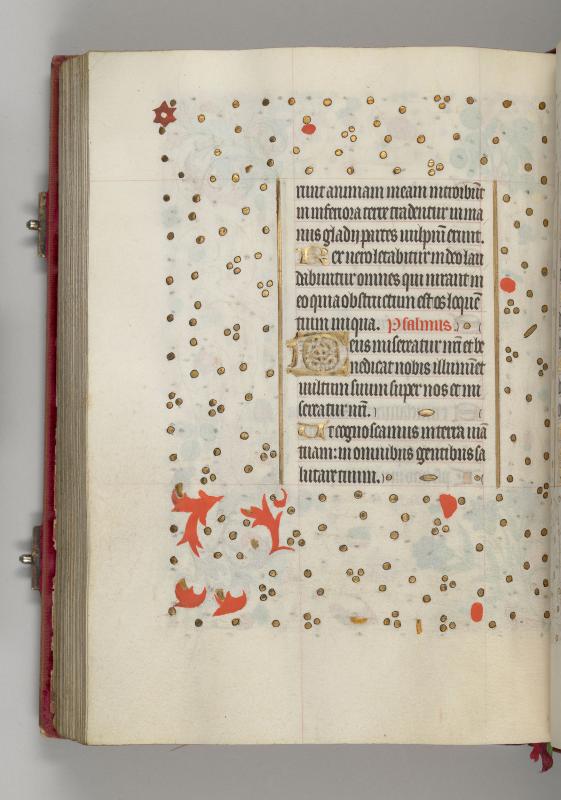 runt animam meam introibūt
in inferiora terre tradentur in ma
nus gladij partes vulpiū erunt.
Rex vero letabitur in deo lau
dabuntur omnes qui iurant in
eo quia obstructum est os loquē
tium iniqua. Psalmus.
Deus misereatur nr̄i et be
nedicat nobis illuminet
vultum suum super nos et mi
sereatur nr̄i.
Ut cognoscamus in terra viā
tuam: in omnibus gentibus sa
lutare tuum.